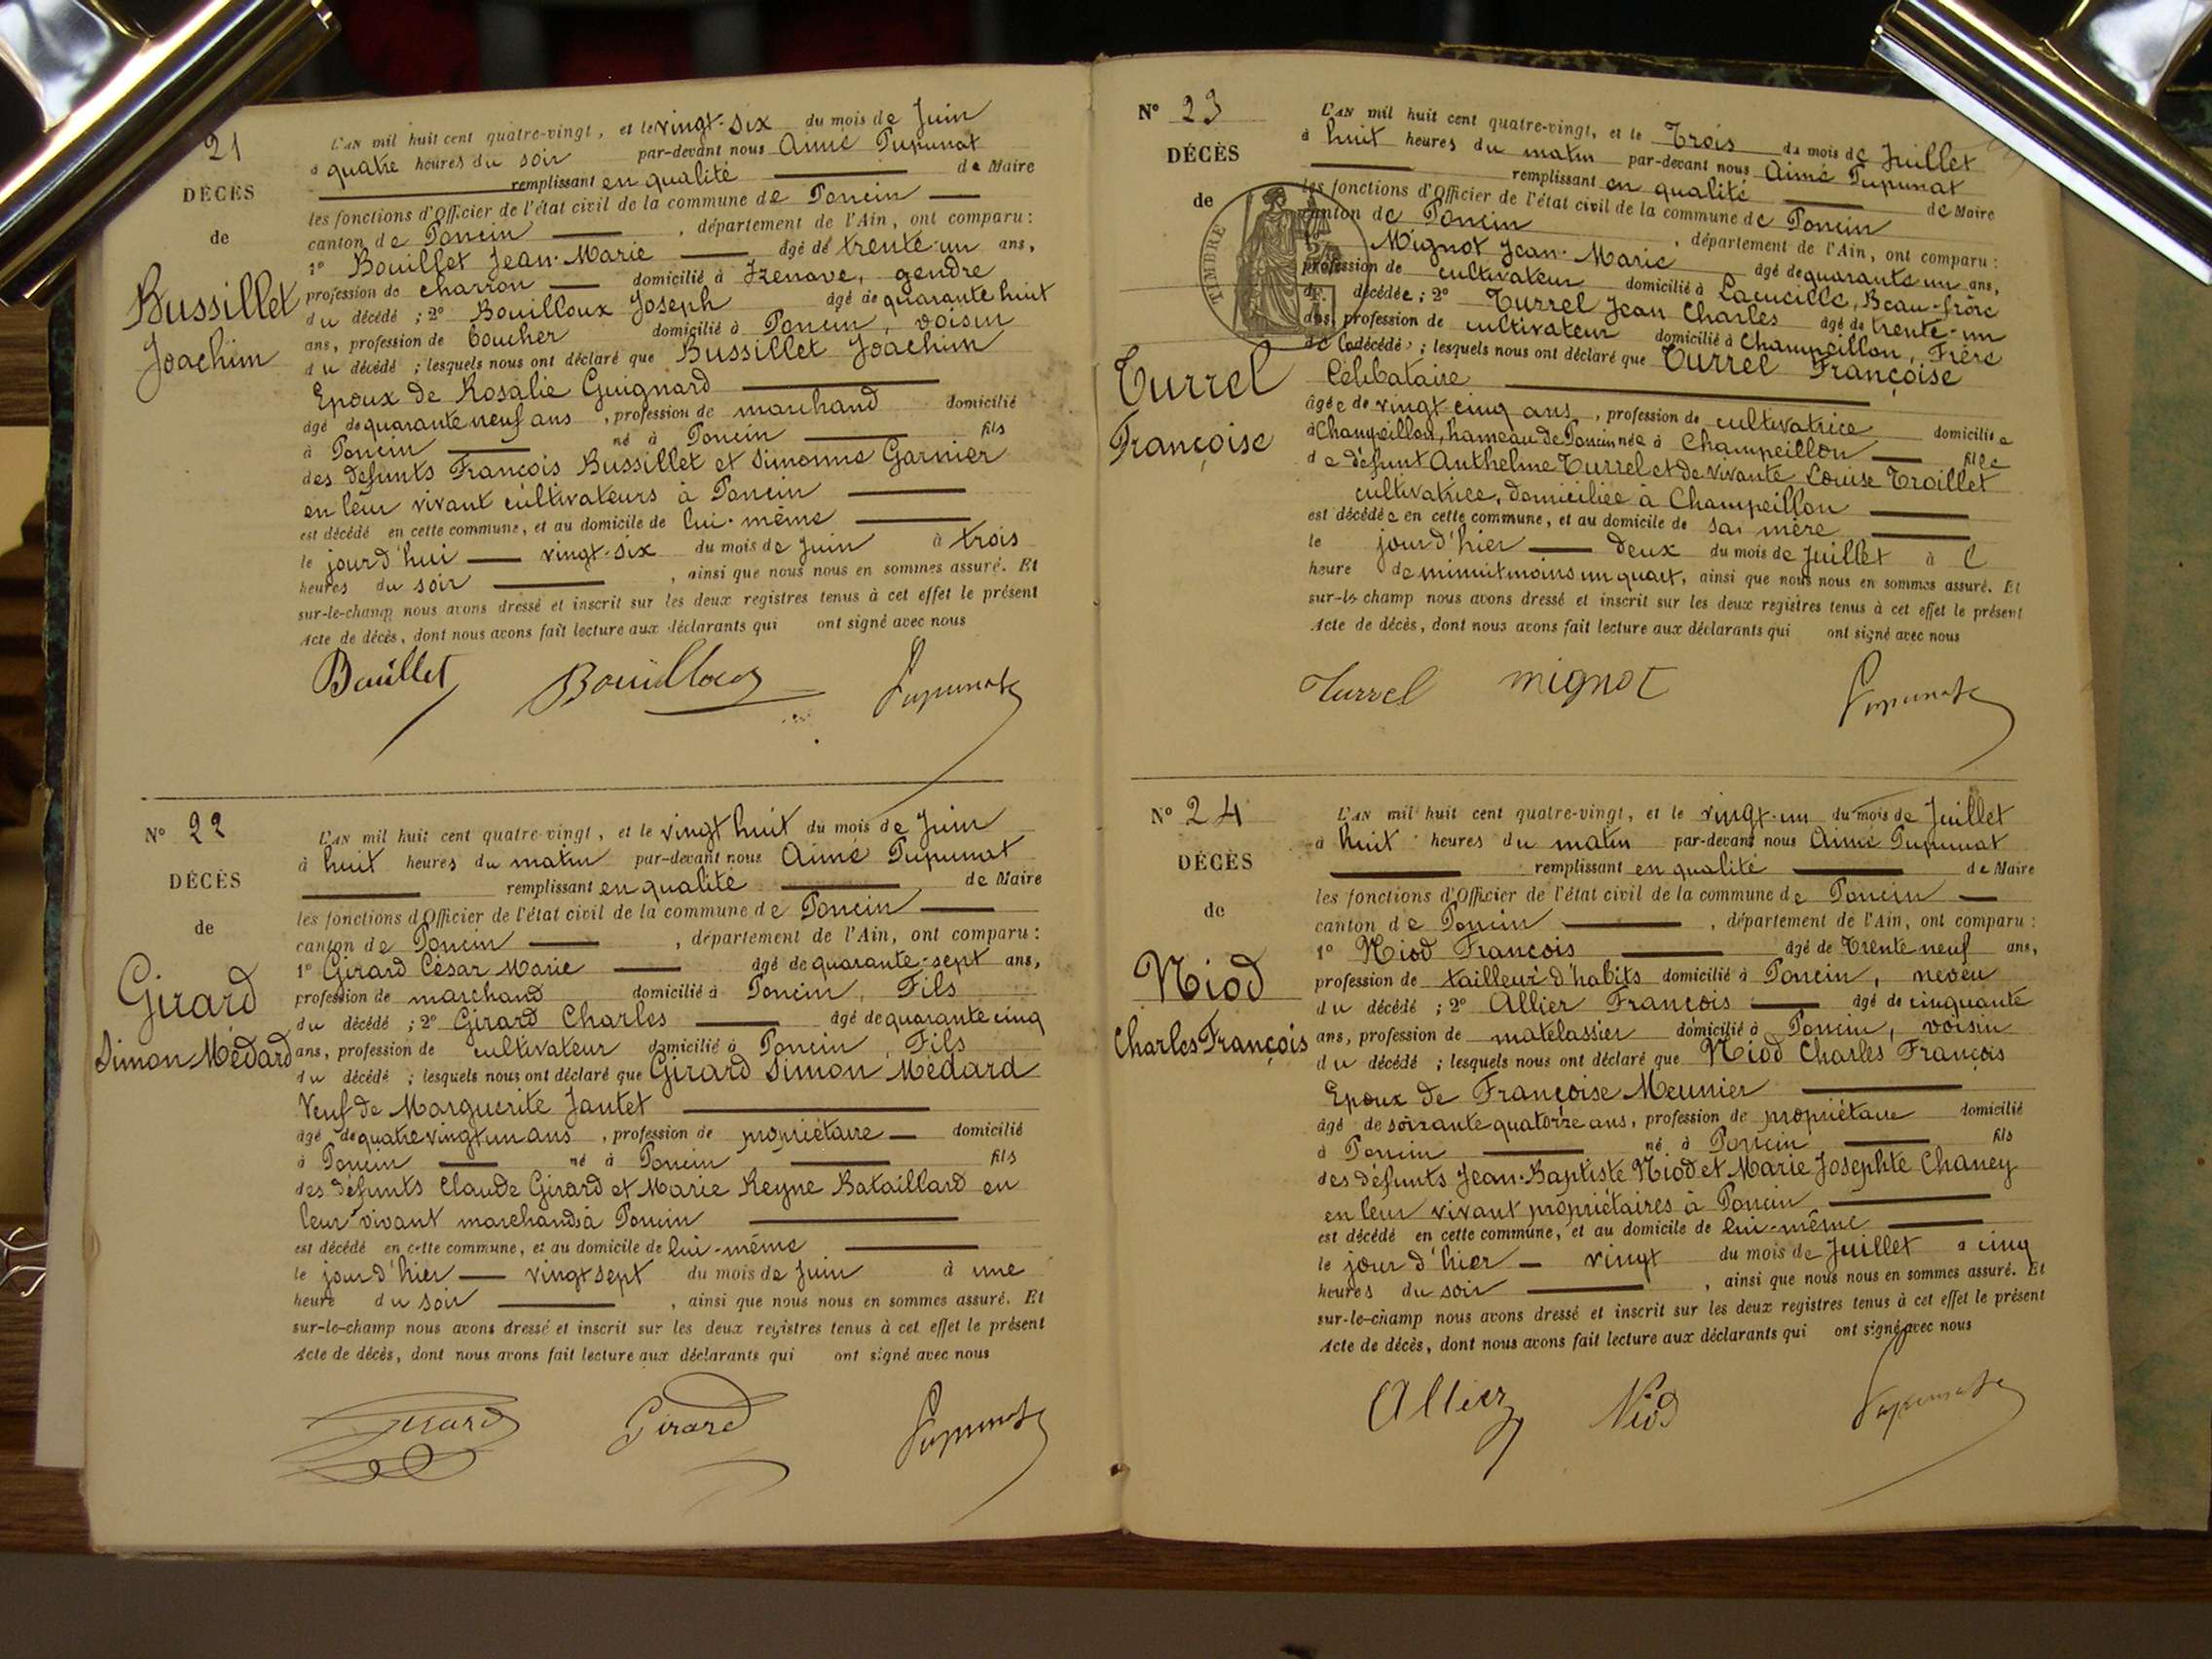 21
DÉCÈS
de
Bussillet
Joachim
L'AN mil huit cent quatre-vingt, et le vingt-six du mois de Juin
à quatre heures du soir par-devant nous Aimé Pupunat
remplissant en qualité de Maire
les fonctions d'Officier de l'état civil de la commune de Poncin
canton de Poncin, département de l'Ain, ont comparu :
1° Bouillet Jean-Marie âgé de trente-un ans,
profession de charron domicilié à Izenave, gendre
du décédé ; 2° Bouilloux Joseph âgé de quarante huit
ans, profession de boucher domicilié à Poncin, voisin
du décédé ; lesquels nous ont déclaré que Bussillet Joachim
Epoux de Rosalie Guignard
âgé de quarante neuf ans, profession de marchand domicilié
à Poncin né à Poncin fils
des défunts François Bussillet et Simonne Garnier
en leur vivant cultivateurs à Poncin
est décédé en cette commune, et au domicile de lui-même
le jourd'hui vingt-six du mois de Juin à trois
heures du soir, ainsi que nous nous en sommes assuré. Et
sur-le-champ nous avons dressé et inscrit sur les deux registres tenus à cet effet le présent
Acte de décès, dont nous avons fait lecture aux déclarants qui ont signé avec nous
Bouillet Bouilloux Pupunat
N° 22
DÉCÈS
de
Girard
Simon Médard
L'AN mil huit cent quatre-vingt, et le vingt huit du mois de Juin
à huit heures du matin par-devant nous Aimé Pupunat
remplissant en qualité de Maire
les fonctions d'Officier de l'état civil de la commune de Poncin
canton de Poncin, département de l'Ain, ont comparu :
1° Girard César Marie âgé de quarante-sept ans,
profession de marchand domicilié à Poncin, Fils
du décédé ; 2° Girard Charles âgé de quarante cinq
ans, profession de cultivateur domicilié à Poncin, Fils
du décédé ; lesquels nous ont déclaré que Girard Simon Médard
Veuf de Marguerite Jantet
âgé de quatre vingt un ans, profession de propriétaire domicilié
à Poncin né à Poncin fils
des défunts Claude Girard et Marie Reyne Bataillard en
leur vivant marchands à Poncin
est décédé en cette commune, et au domicile de lui-même
le jour d'hier vingt sept du mois de Juin à une
heure du soir, ainsi que nous nous en sommes assuré. Et
sur-le-champ nous avons dressé et inscrit sur les deux registres tenus à cet effet le présent
Acte de décès, dont nous avons fait lecture aux déclarants qui ont signé avec nous
Girard Girard Pupunat
N° 23
DÉCÈS
de
TIMBRE
Turrel
Françoise
L'AN mil huit cent quatre-vingt, et le Trois du mois de Juillet
à huit heures du matin par-devant nous Aimé Pupunat
remplissant en qualité de Maire
les fonctions d'Officier de l'état civil de la commune de Poncin
canton de Poncin, département de l'Ain, ont comparu :
1° Mignot Jean-Marie âgé de quarante un ans,
profession de cultivateur domicilié à Beau-frère
décédée ; 2° Turrel Jean Charles âgé de trente-un
ans, profession de cultivateur domicilié à Champeillon, Frère
de la décédée ; lesquels nous ont déclaré que Turrel Françoise
Célibataire
âgée de vingt cinq ans, profession de cultivatrice domiciliée
à Champeillon, hameau de Poncin née à Champeillon fille
de défunt Anthelme Turrel et de vivante Louise Troillet
cultivatrice, domiciliée à Champeillon
est décédée en cette commune, et au domicile de sa mère
le jour d'hier deux du mois de Juillet à l
heure de minuit moins un quart, ainsi que nous nous en sommes assuré. Et
sur-le-champ nous avons dressé et inscrit sur les deux registres tenus à cet effet le présent
Acte de décès, dont nous avons fait lecture aux déclarants qui ont signé avec nous
Turrel mignot Pupunat
N° 24
DÉCÈS
de
Niod
Charles François
L'AN mil huit cent quatre-vingt, et le vingt-un du mois de Juillet
à huit heures du matin par-devant nous Aimé Pupunat
remplissant en qualité de Maire
les fonctions d'Officier de l'état civil de la commune de Poncin
canton de Poncin, département de l'Ain, ont comparu :
1° Niod François âgé de Trente neuf ans,
profession de tailleur d'habits domicilié à Poncin, neveu
du décédé ; 2° Allier François âgé de cinquante
ans, profession de matelassier domicilié à Poncin, voisin
du décédé ; lesquels nous ont déclaré que Niod Charles François
Epoux de Françoise Meunier
âgé de soixante quatorze ans, profession de propriétaire domicilié
à Poncin né à Poncin fils
des défunts Jean-Baptiste Niod et Marie Josephte Chaney
en leur vivant propriétaires à Poncin
est décédé en cette commune, et au domicile de lui-même
le jour d'hier vingt du mois de Juillet à cinq
heures du soir, ainsi que nous nous en sommes assuré. Et
sur-le-champ nous avons dressé et inscrit sur les deux registres tenus à cet effet le présent
Acte de décès, dont nous avons fait lecture aux déclarants qui ont signé avec nous
Allier Niod Pupunat